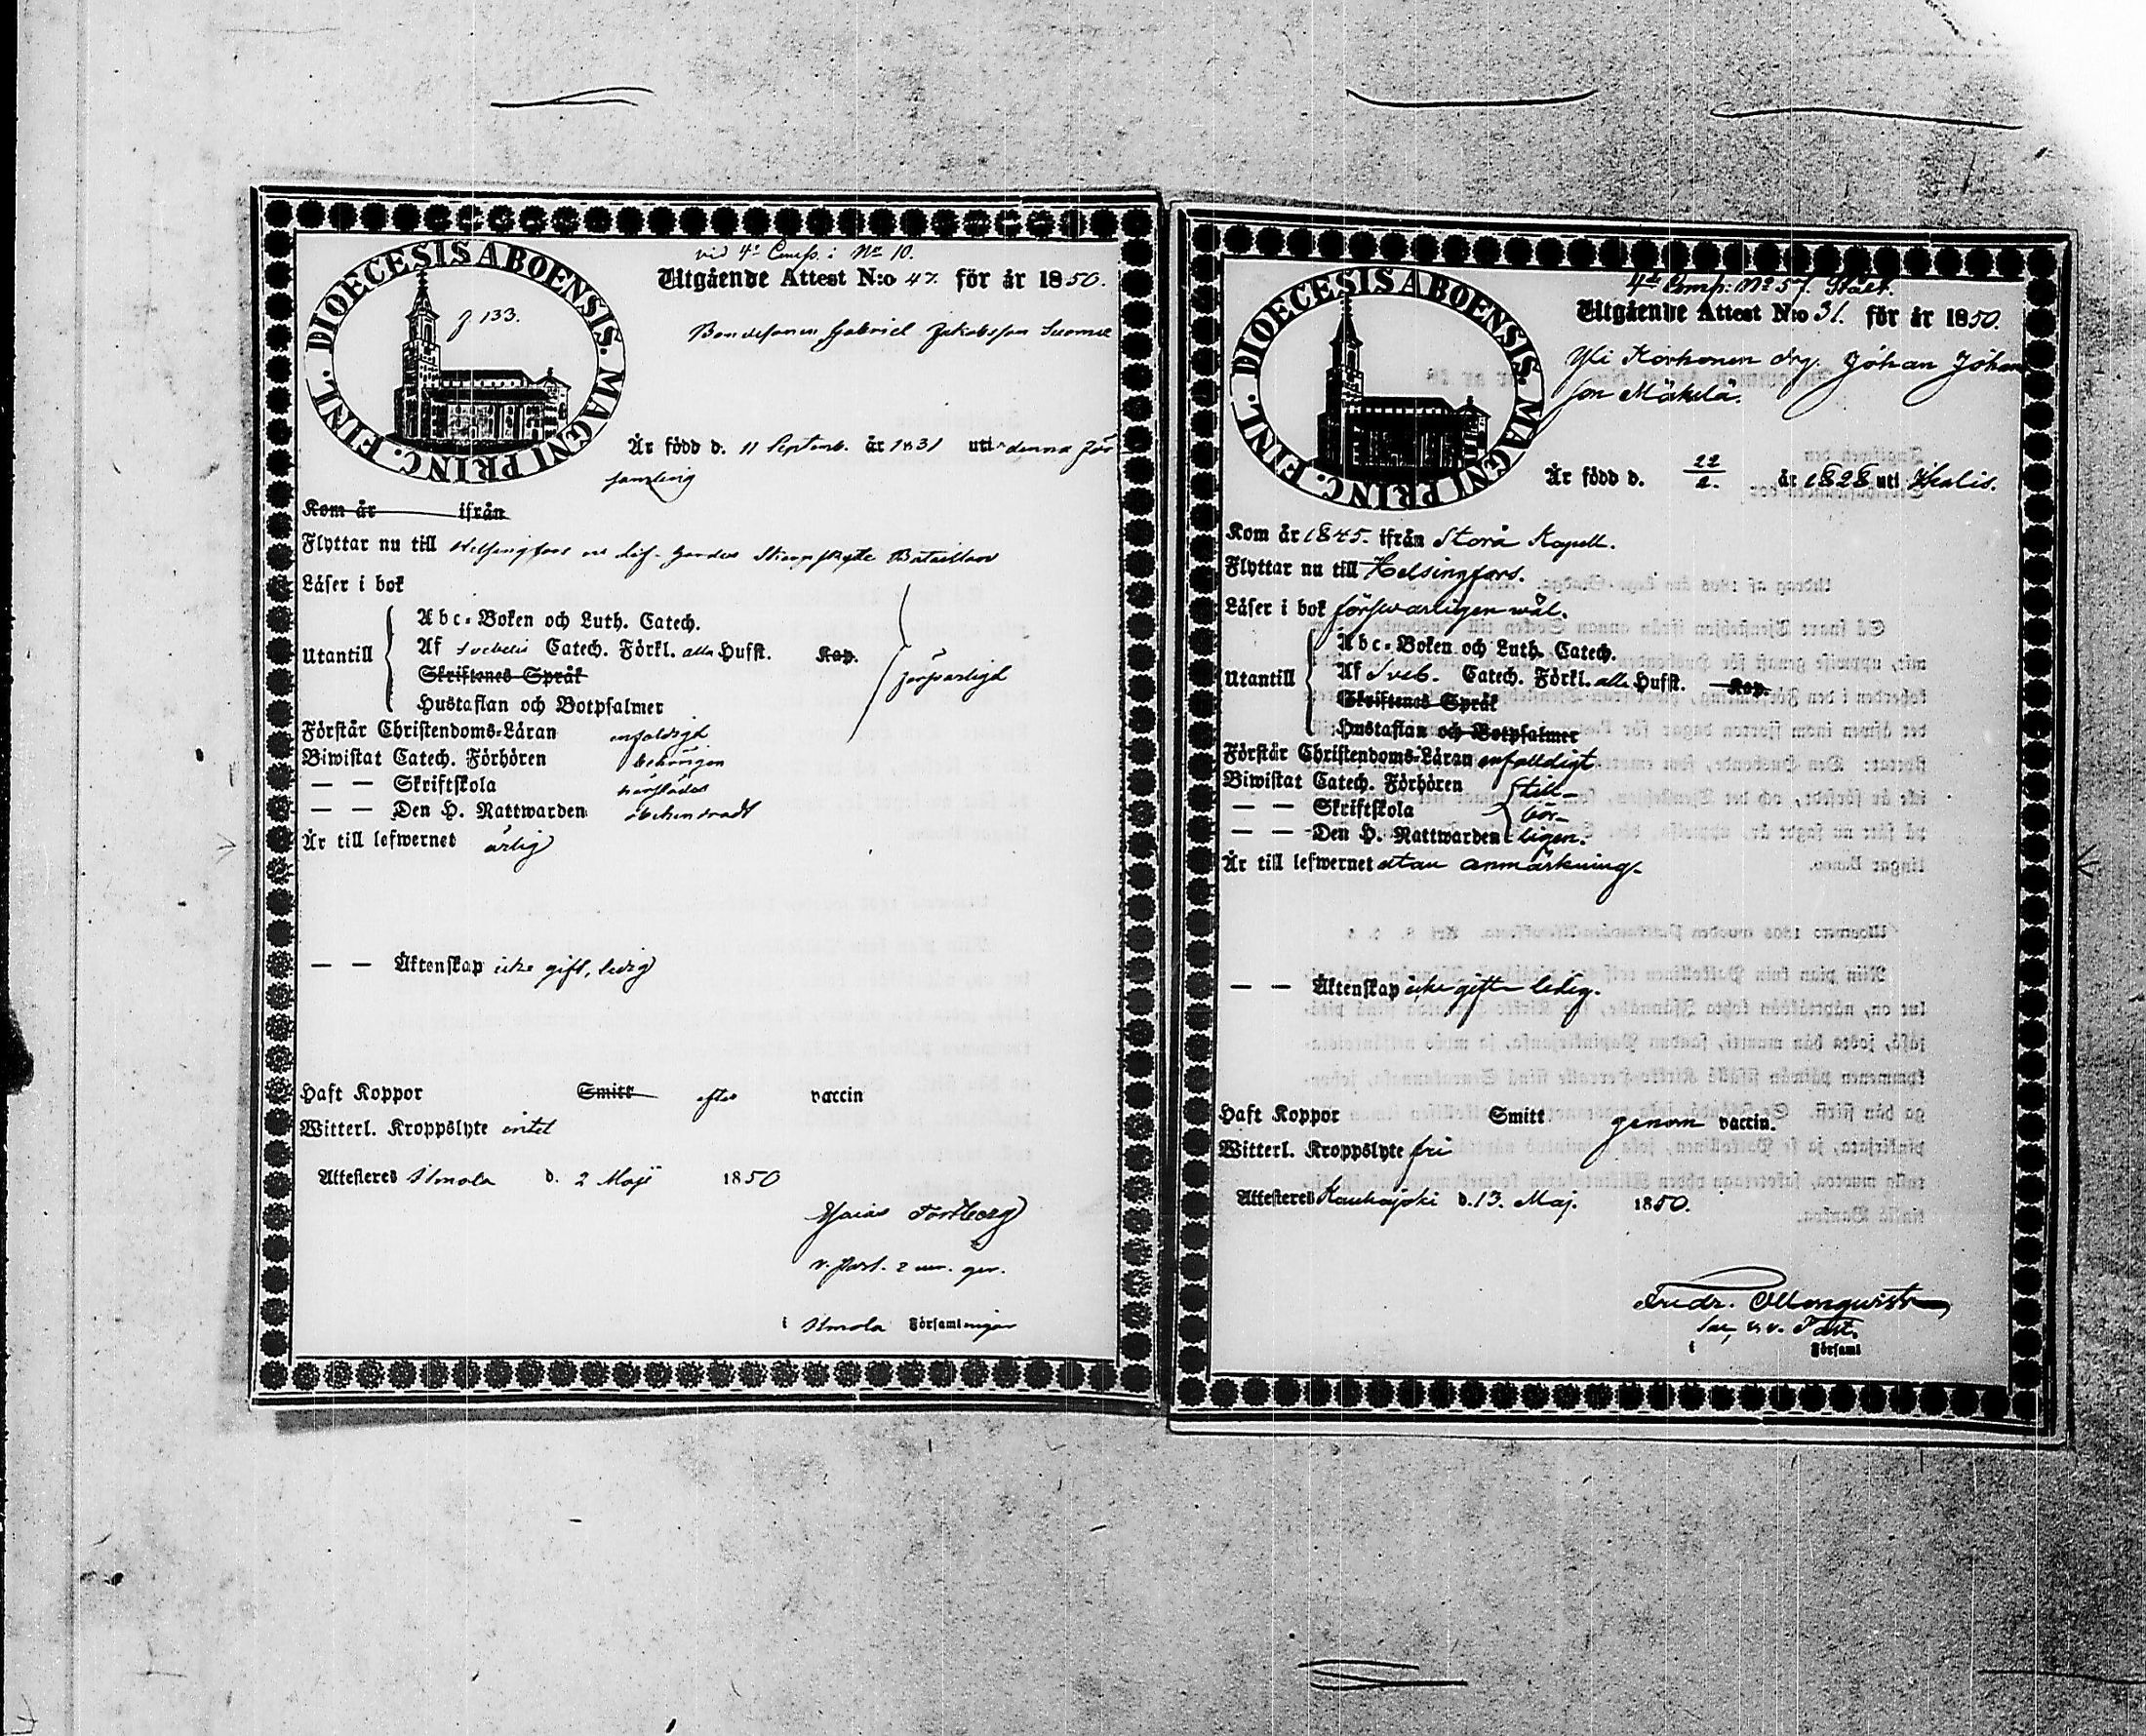 vid 4de Comp: No 10.
DIOECESIS ABOENSIS. MAGNI PRINC. FINL.
133.
Utgående Attest N:o 47. för år 1850.
Bondesonen Gabriel Jakobsson
Är född d. 11 Septemb. år 1831 uti denna för
samling
Kom år ifrån
Flyttar nu till Helsingfors Bataillon
Läser i bok
Utantill
Abc-Boken och Luth. Catech.
Af Svebelii Catech. Förkl. alla Hufst. Kap.
Skriftenes Språk
Hustaflan och Botpsalmer
försvarligt
Förstår Christendoms-Läran enfaldigt
Biwistat Catech. Förhören behörigen
— — Skriftskola
— — Den H. Nattwarden obehindradt
Är till lefwernet ärlig
— — Äktenskap icke gift, ledig
Haft Koppor Smitt efter vaccin
Witterl. Kroppslyte intet
Attesteres Ilmola d. 2 Maji 1850
Esaias
v. Past.
i Ilmola Församlingar
4de Comp: No 57.
DIOECESIS ABOENSIS. MAGNI PRINC. FINL.
Utgående Attest N:o 31. för år 1850.
Yli Korhonen drg. Johan Johan
son Mäkelä.
Är född d. 22/2. år 1828 uti Ikalis.
Kom år 1845. ifrån Storå Kapell.
Flyttar nu till Helsingfors.
Läser i bok försvarligen wäl.
Utantill
Abc-Boken och Luth. Catech.
Af Sveb. Catech. Förkl. alla Hufst. Kap.
Skriftenes Språk
Hustaflan och Botpsalmer
Förstår Christendoms-Läran enfalldigt
Biwistat Catech. Förhören till-
— — Skriftskola bör-
— — Den H. Nattwarden ligen.
Är till lefwernet utan anmärkning.
— — Äktenskap icke gift ledig.
Haft Koppor Smitt genom vaccin.
Witterl. Kroppslyte fri
Attesteres Kauhajoki d. 13. Maj. 1850.
Fredr.
v. Past.
i Församl